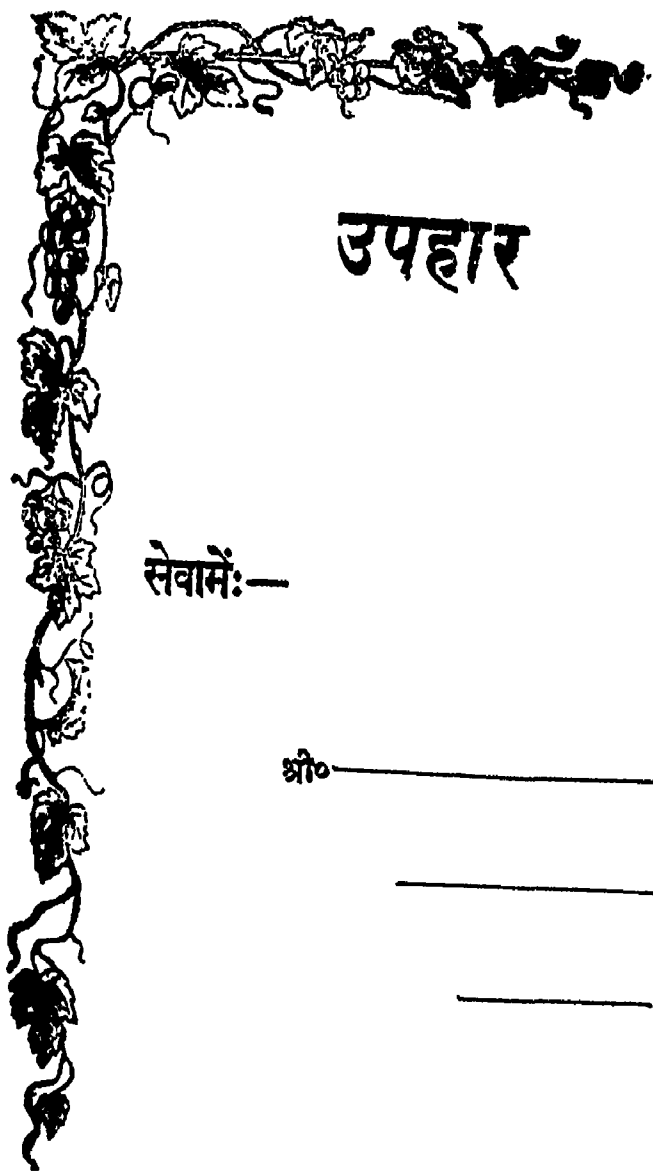 उपहार
सेवामें:—
श्री०